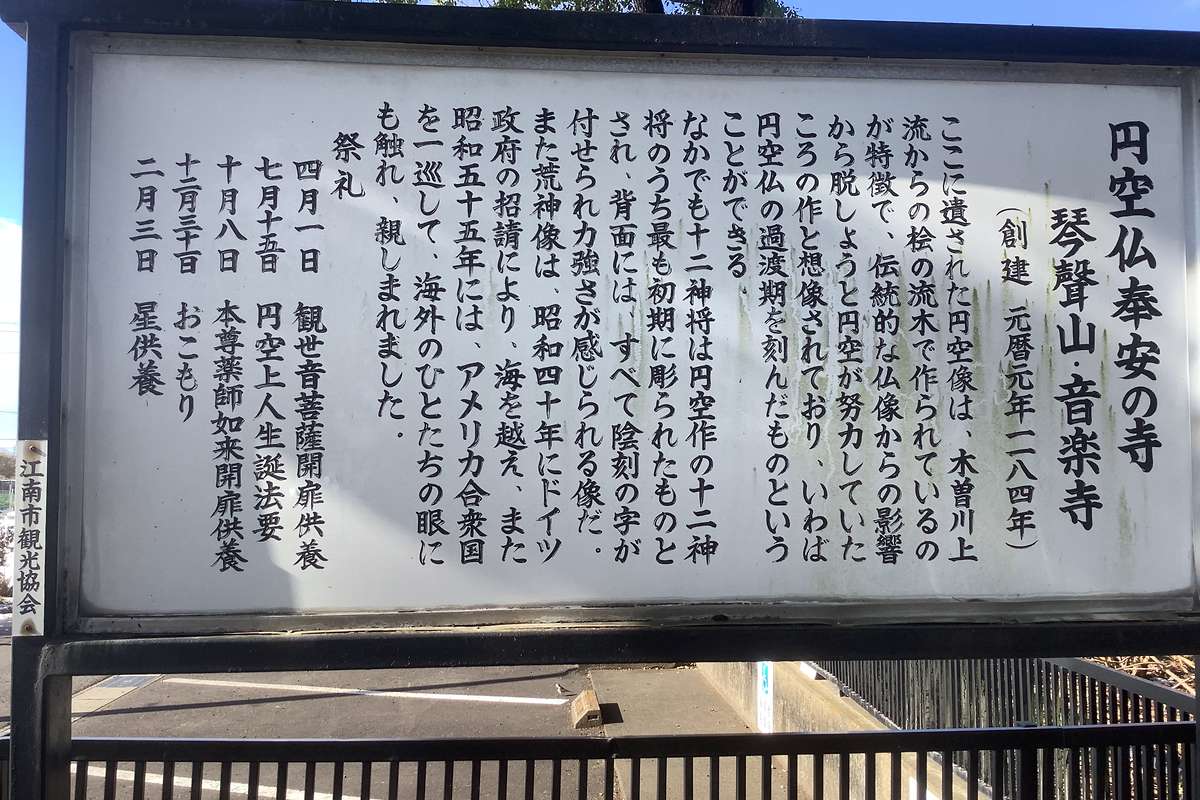 円空仏奉安の寺
琴聲山・音楽寺
（創建　元暦元年一一八四年）
ここに遺された円空像は、木曽川上
流からの桧の流木で作られているの
が特徴で、伝統的な仏像からの影響
から脱しようと円空が努力していた
ころの作と想像されており、いわば
円空仏の過渡期を刻んだものという
ことができる
なかでも十二神将は円空作の十二神
将のうち最も初期に彫られたものと
され、背面には、すべて陰刻の字が
付せられ力強さが感じられる像だ。
また荒神像は、昭和四十年にドイツ
政府の招請により、海を越え、また
昭和五十五年には、アメリカ合衆国
を一巡して、海外のひとたちの眼に
も触れ、親しまれました。
祭礼
四月一日　観世音菩薩開扉供養
七月十五日　円空上人生誕法要
十月八日　本尊薬師如来開扉供養
十二月三十日　おこもり
二月三日　星供養
江南市観光協会